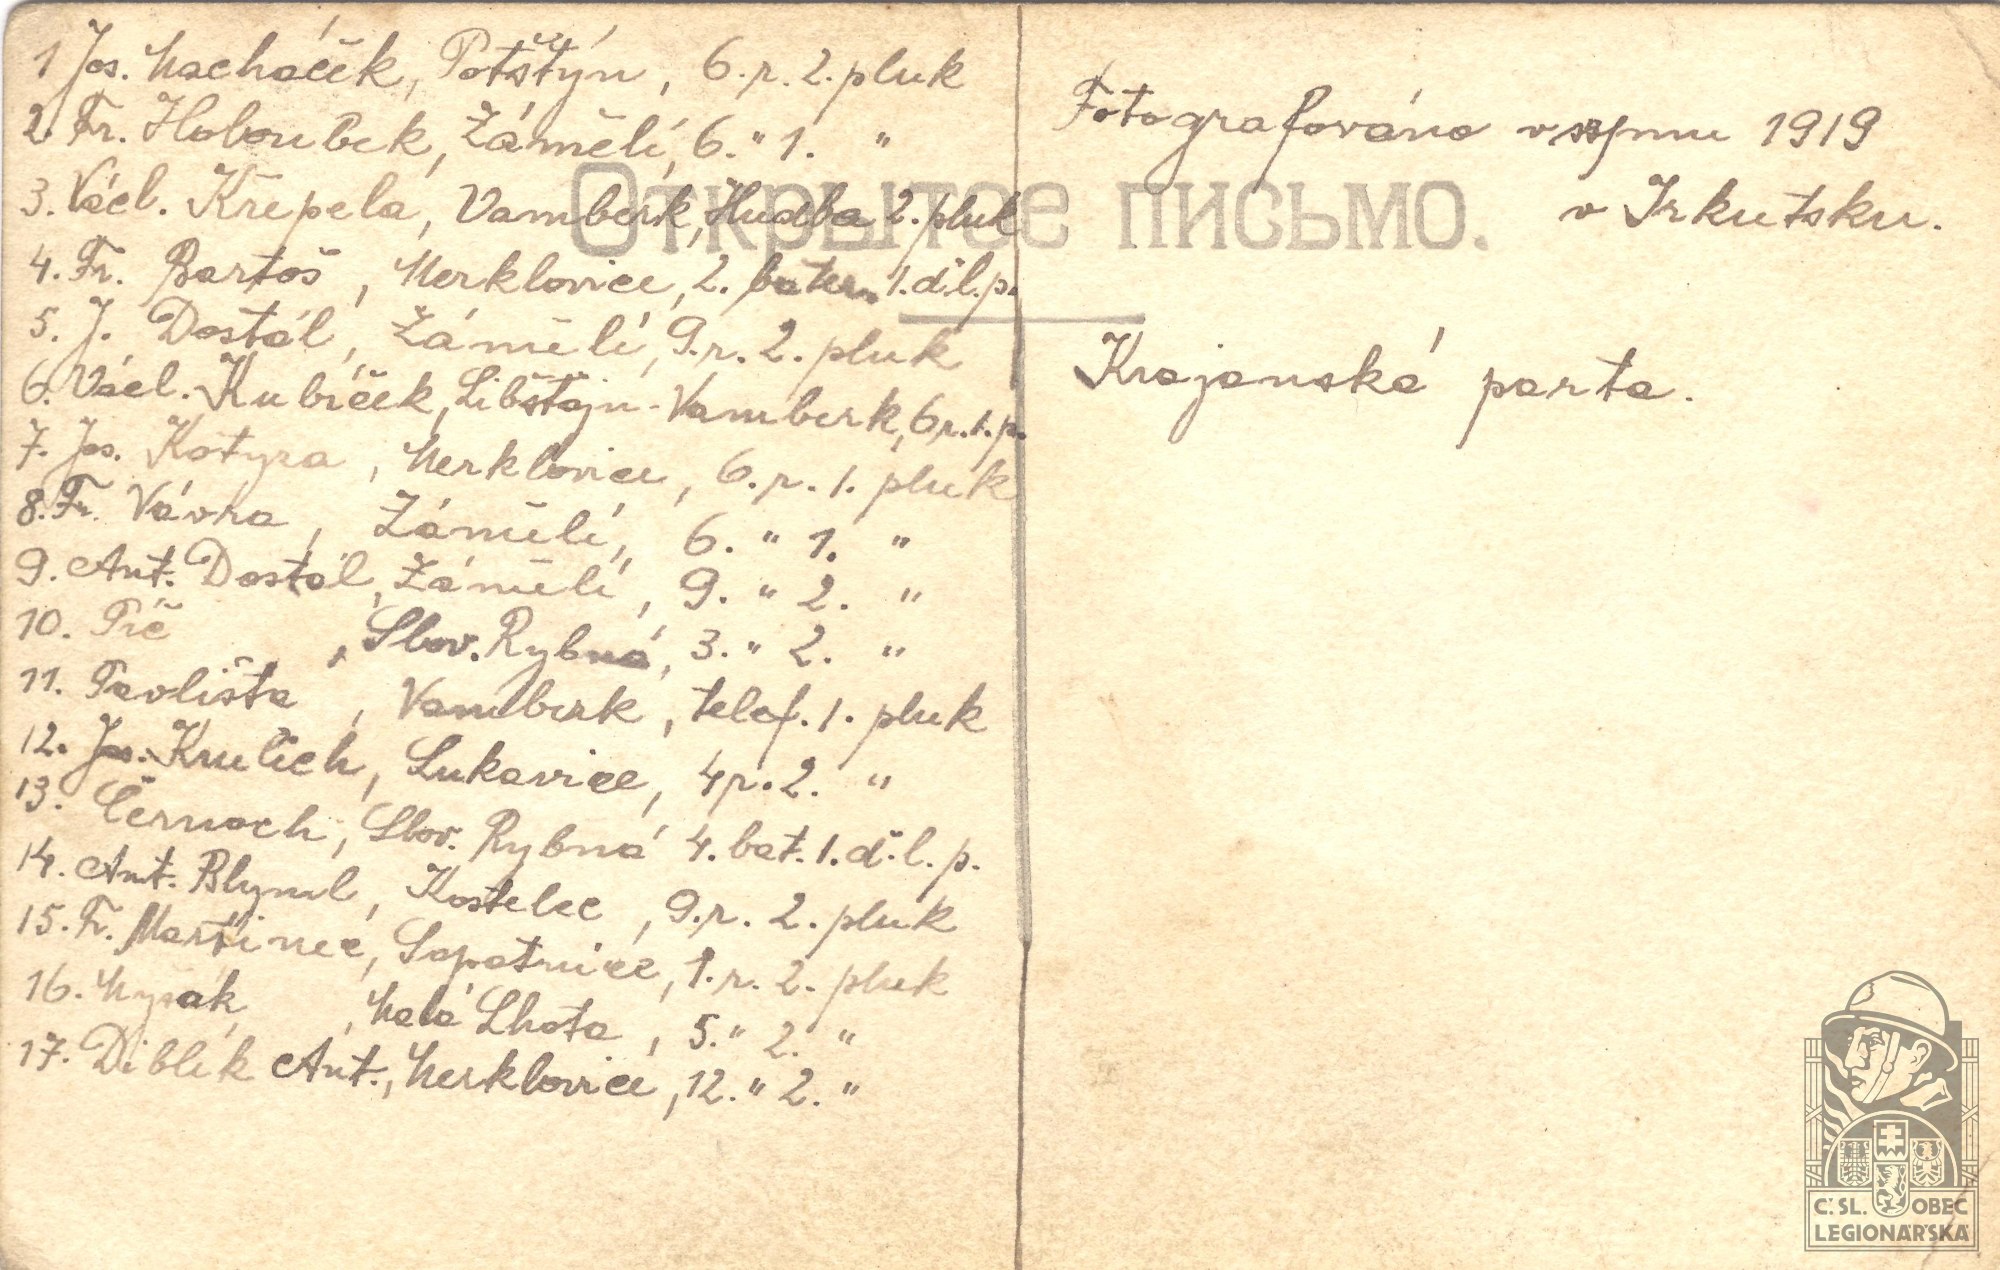 1 Jos. Macháček, Potštýn, 6. r. 2. pluk
2. Fr. Holoubek, Záměli, 6. " 1. "
3. Václ. Křepela, Vamberk, Hudba 2. pluk
4. Fr. Bartoš, Merklovice, 2. bater. 1. děl. p.
5. J. Dostál, Zámělí, 9. r. 2. pluk
6. Václ. Kubíček, Libštajn - Vamberk, 6 r. 1. p.
7. Jos. Kotyza, Merklovice, 6. r. 1. pluk
8. Fr. Vávra, Zámělí, 6. " 1. "
9. Ant. Dostál, Zámělí, 9. " 2. "
10. Píč, Slov. Rybná, 3. " 2. "
11. Pavlišta, Vamberk, telef. 1. pluk
12. Jos. Krulich, Lukavice, 4 r. 2. "
13. Černoch, Slov. Rybná 4. bat. 1. d. l. p.
14. Ant. Blyml, Kostelec, 9. r. 2. pluk
15. Fr. Martinec, Sopotnice, 1. r. 2. pluk
16. Mysák, Malá Lhota, 5. " 2. "
17. Diblík Ant., Merklovice, 12. " 2. "
Открытое письмо.
Fotografováno v srpnu 1919
v Irkutsku.
Krajanská parta.
Č. SL. OBEC
LEGIONÁŘSKÁ